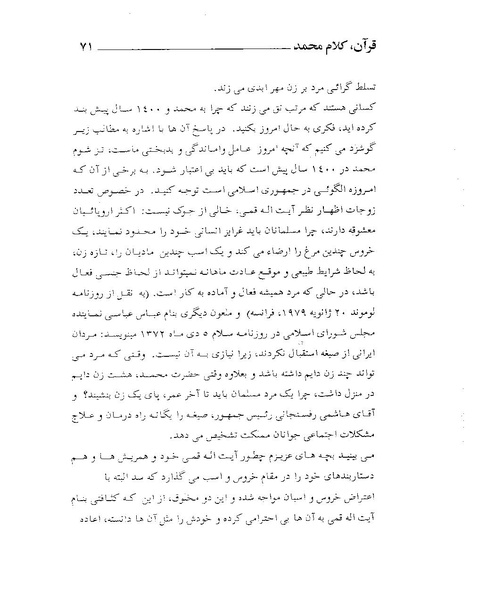 قرآن، کلام محمد ۷۱
تسلط گرائی مرد بر زن مهر ابدی می زند.
کسانی هستند که مرتب نق می زنند که چرا به محمد و ۱۴۰۰ سال پیش بند
کرده اید، فکری به حال امروز بکنید. در پاسخ آن ها با اشاره به مطالب زیر
گوشزد می کنیم که آنچه امروز عامل واماندگی و بدبختی ماست، تز شوم
محمد در ۱۴۰۰ سال پیش است که باید بی اعتبار شود. به برخی از آن که
امروزه الگوئی در جمهوری اسلامی است توجه کنید. در خصوص تعدد
زوجات اظهار نظر آیت اله قمی، خالی از جوک نیست: اکثر اروپائیان
معشوقه دارند، چرا مسلمانان باید غرایز انسانی خود را محدود نمایند، یک
خروس چندین مرغ را ارضاء می کند و یک اسب چندین مادیان را، تازه زن،
به لحاظ شرایط طبیعی و موقع عادت ماهانه نمیتواند از لحاظ جنسی فعال
باشد، در حالی که مرد همیشه فعال و آماده به کار است. (به نقل از روزنامه
لوموند ۲۰ ژانویه ۱۹۷۹، فرانسه) و ملعون دیگری بنام عباس عباسی نماینده
مجلس شورای اسلامی در روزنامه سلام ۵ دی ماه ۱۳۷۲ مینویسد: مردان
ایرانی از صیغه استقبال نکردند، زیرا نیازی به آن نیست. وقتی که مرد می
تواند چند زن دایم داشته باشد و بعلاوه وقتی حضرت محمد، هشت زن دایم
در منزل داشت، چرا یک مرد مسلمان باید تا آخر عمر، پای یک زن بنشیند؟ و
آقای هاشمی رفسنجانی رئیس جمهور، صیغه را یگانه راه درمان و علاج
مشکلات اجتماعی جوانان مملکت تشخیص می دهد.
می بینید بچه های عزیزم چطور آیت اله قمی خود و همریش ها و هم
دستاربندهای خود را در مقام خروس و اسب می گذارد که صد البته با
اعتراض خروس و اسبان مواجه شده و این دو مخلوق، از این که کثافتی بنام
آیت اله قمی به آن ها بی احترامی کرده و خودش را مثل آن ها دانسته، اعاده